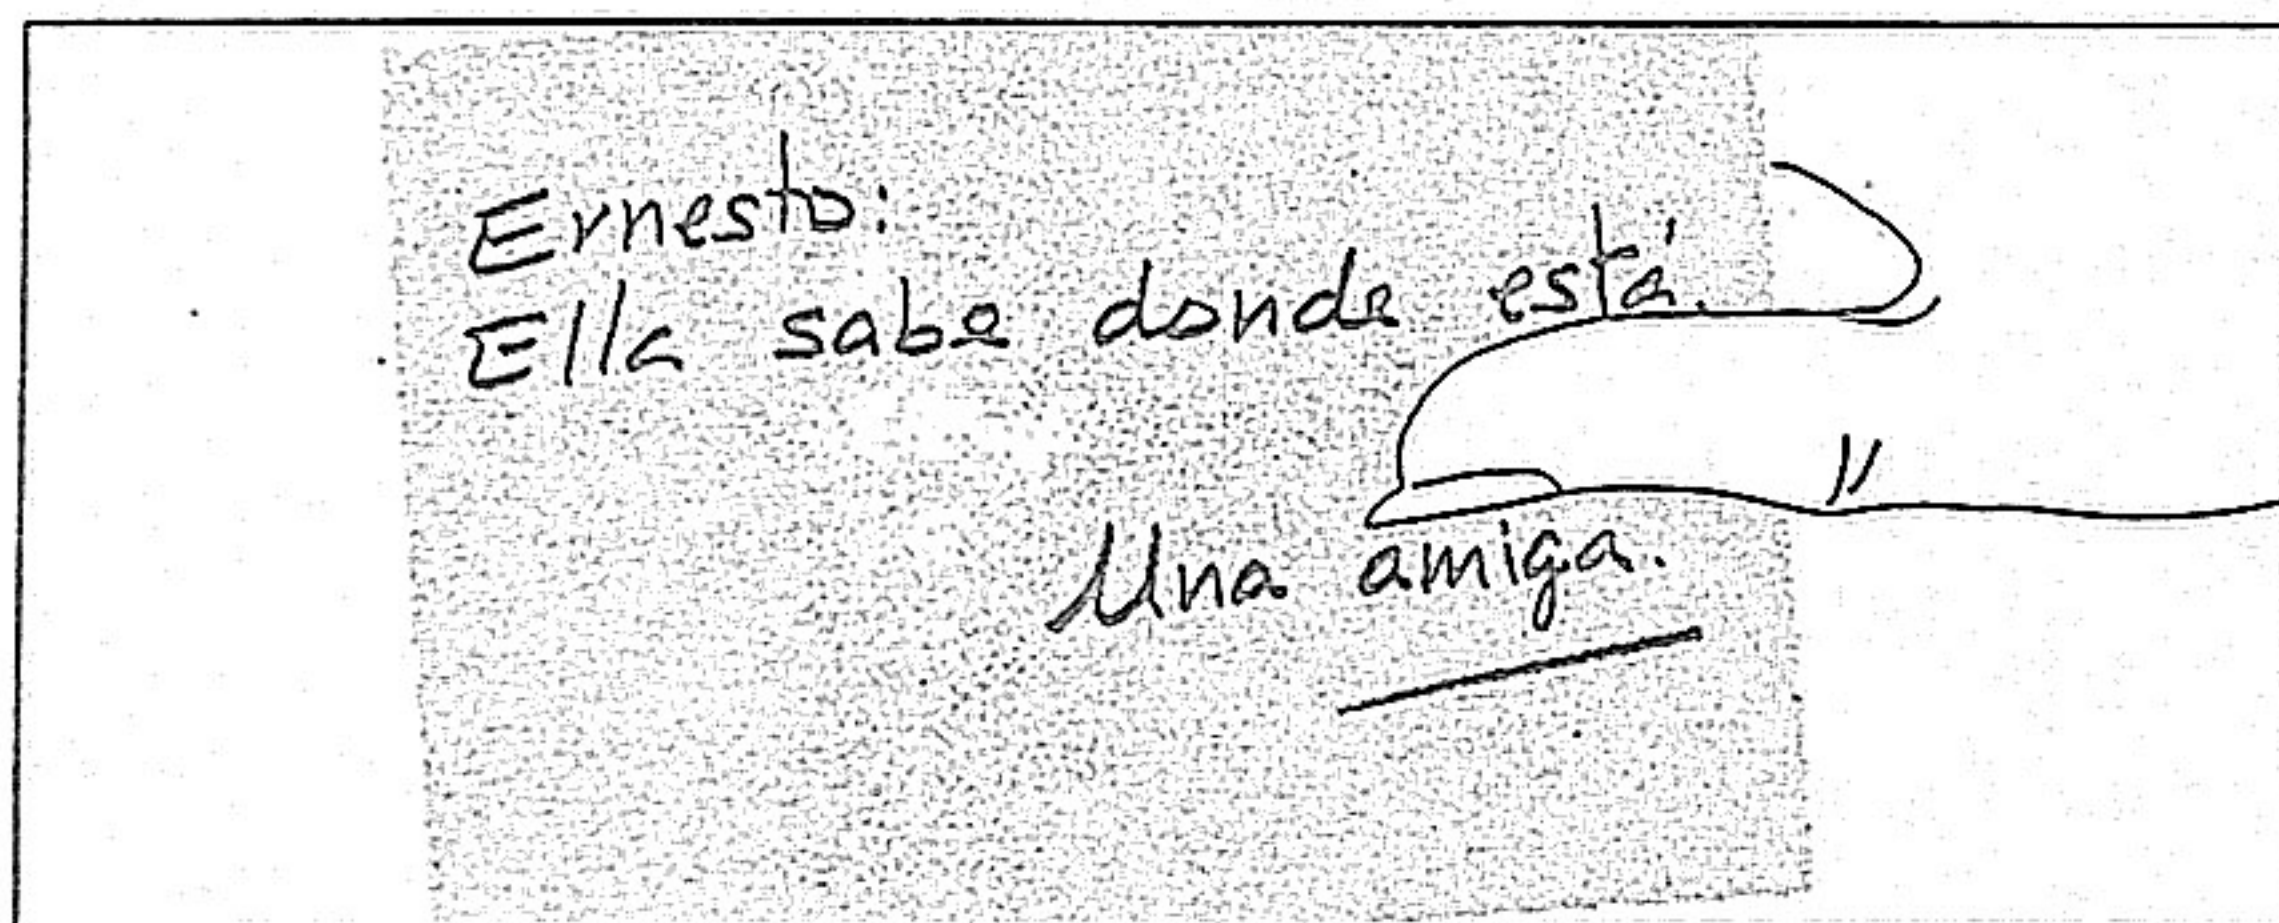 Ernesto:
Ella sabe donde está.
Una amiga.